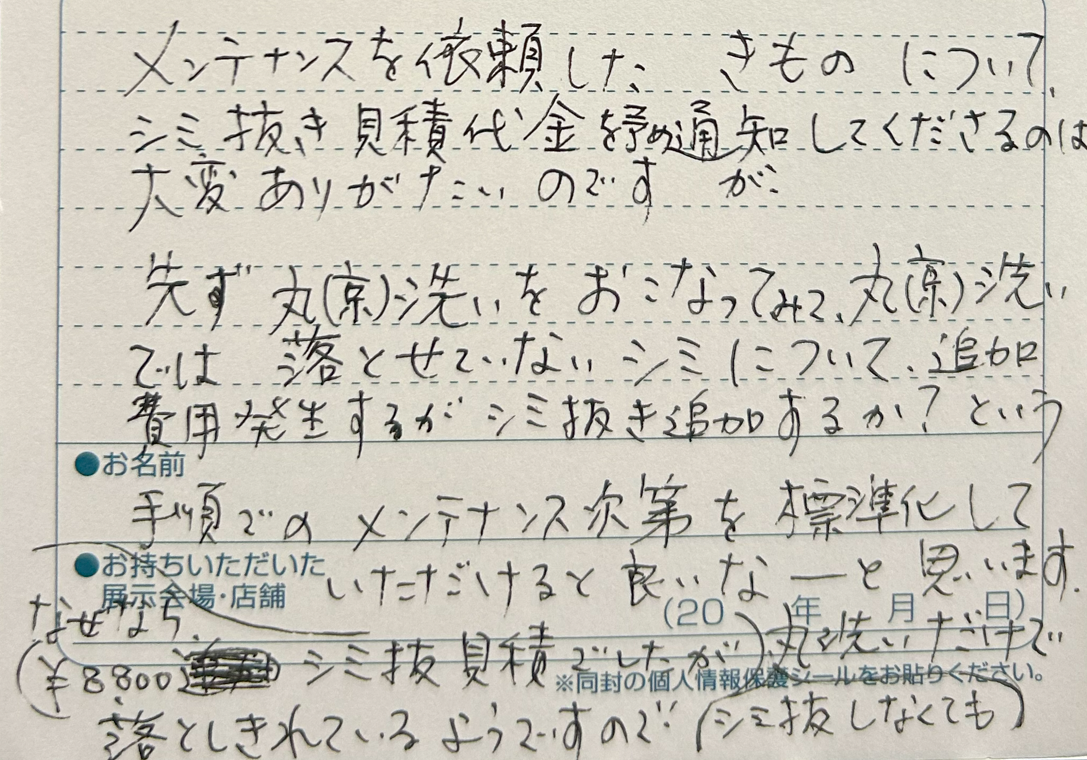 メンテナンスを依頼した きものについて、
シミ抜き見積代金を予め通知してくださるのは
大変ありがたいのですが、
先ず丸(京)洗いをおこなってみて、丸(京)洗い
では落とせていないシミについて、追加
費用発生するがシミ抜き追加するか?という
●お名前
手順でのメンテナンス次第を標準化して
●お持ちいただいた
展示会場・店舗
いただけると良いなーと思います。
(20 年 月 日)
なぜなら、
(¥8800 シミ抜見積でしたが)、丸洗いだけで
※同封の個人情報保護シールをお貼りください。
落としきれているようですので(シミ抜しなくても)